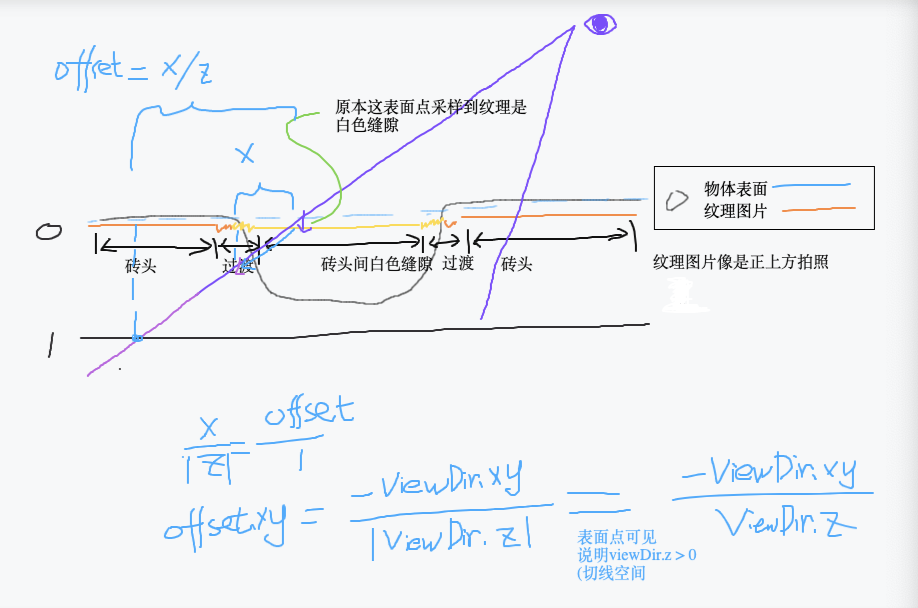 offset = x/z
原本这表面点采样到纹理是
白色缝隙
x
物体表面
纹理图片
0
砖头
过渡
砖头间白色缝隙
过渡
砖头
纹理图片像是正上方拍照
1
x/|z| = offset/1
offset.xy = -viewDir.xy/|viewDir.z| = -viewDir.xy/viewDir.z
表面点可见
说明viewDir.z > 0
(切线空间